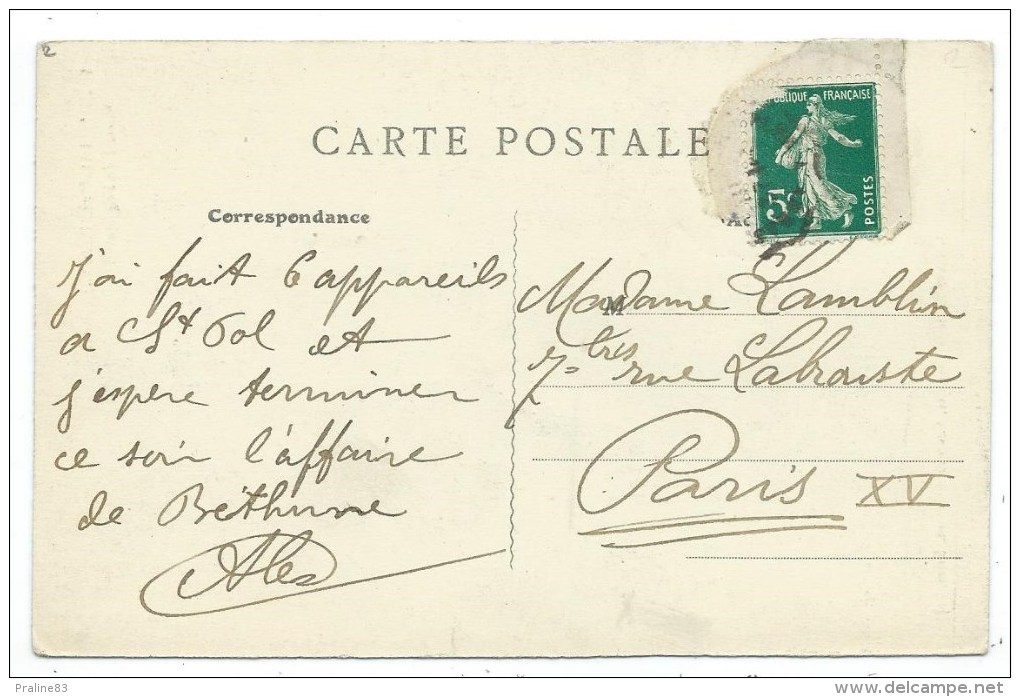 CARTE POSTALE
RÉPUBLIQUE FRANÇAISE
5c
POSTES
Correspondance
J'ai fait 6 appareils
a St Pol et
j'espere terminer
ce soir l'affaire
de Béthune
Alex
M
Madame Lamblin
7 bis rue Labrouste
Paris XV
Praline83
delcampe.net